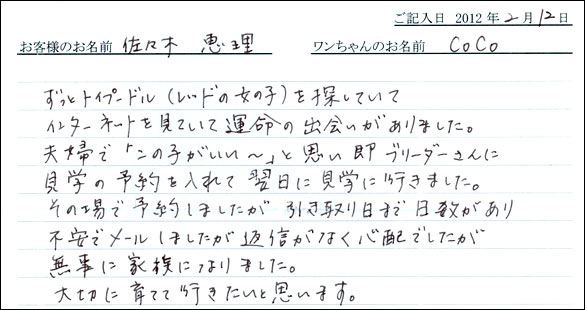 ご記入日 2012年2月12日
お客様のお名前 佐々木 恵理 ワンちゃんのお名前 CoCo
ずっとトイプードル(レッドの女の子)を探していて
インターネットを見ていて運命の出会いがありました。
夫婦で「この子がいい〜」と思い即ブリーダーさんに
見学の予約を入れて翌日に見学に行きました。
その場で予約しましたが引き取り日まで日数があり
不安でメールしましたが返信がなく心配でしたが
無事に家族になりました。
大切に育てて行きたいと思います。